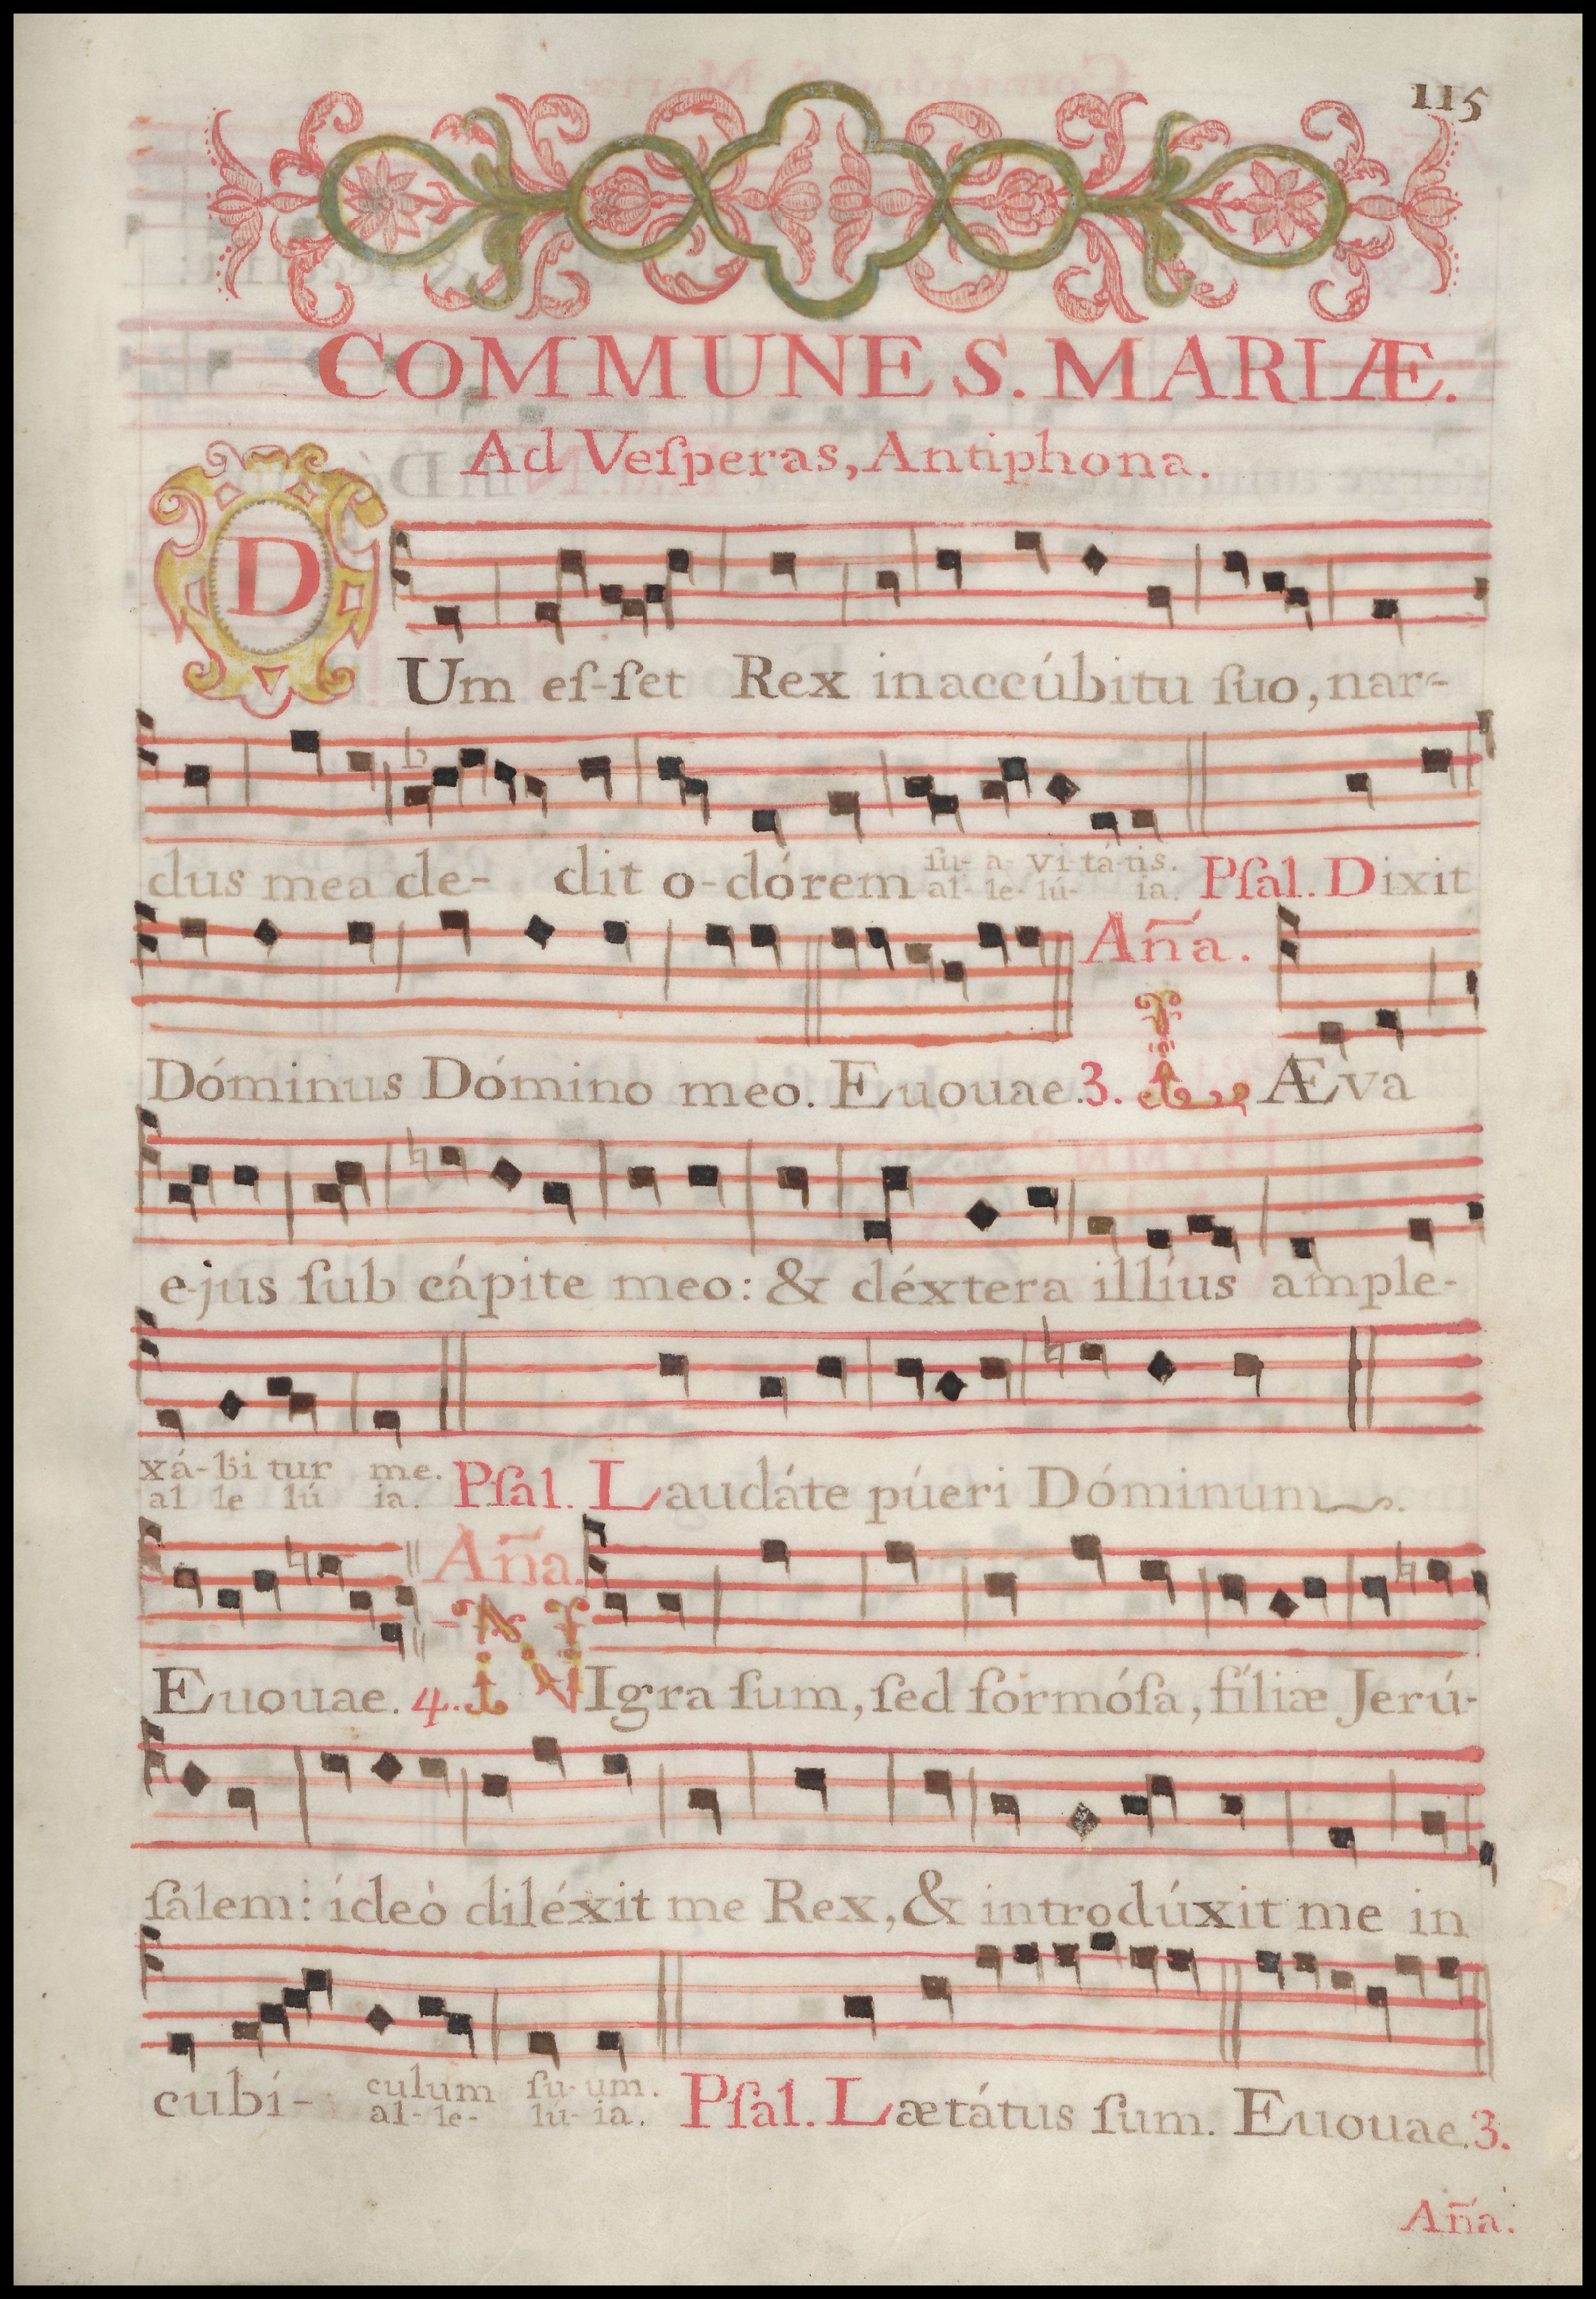 115
COMMUNE S. MARIÆ.
Ad Veſperas, Antiphona.
DUm eſ-ſet Rex in accúbitu ſuo, nar-
dus mea de- dit o-dórem ſu- a- vi-tá-tis.
al- le- lú- ia. Pſal. Dixit
Dóminus Dómino meo. Euouae. 3. Aña. LÆva
e-jus ſub cápite meo: & déxtera illíus ample-
xá-bi tur me.
al le lú ia. Pſal. Laudáte púeri Dóminum.
Euouae. 4. Aña. NIgra ſum, ſed formóſa, fíliæ Jerú-
ſalem: ídeò diléxit me Rex, & introdúxit me in
cubí- culum ſu-um.
al- le- lú- ia. Pſal. Lætátus ſum. Euouae. 3.
Aña.